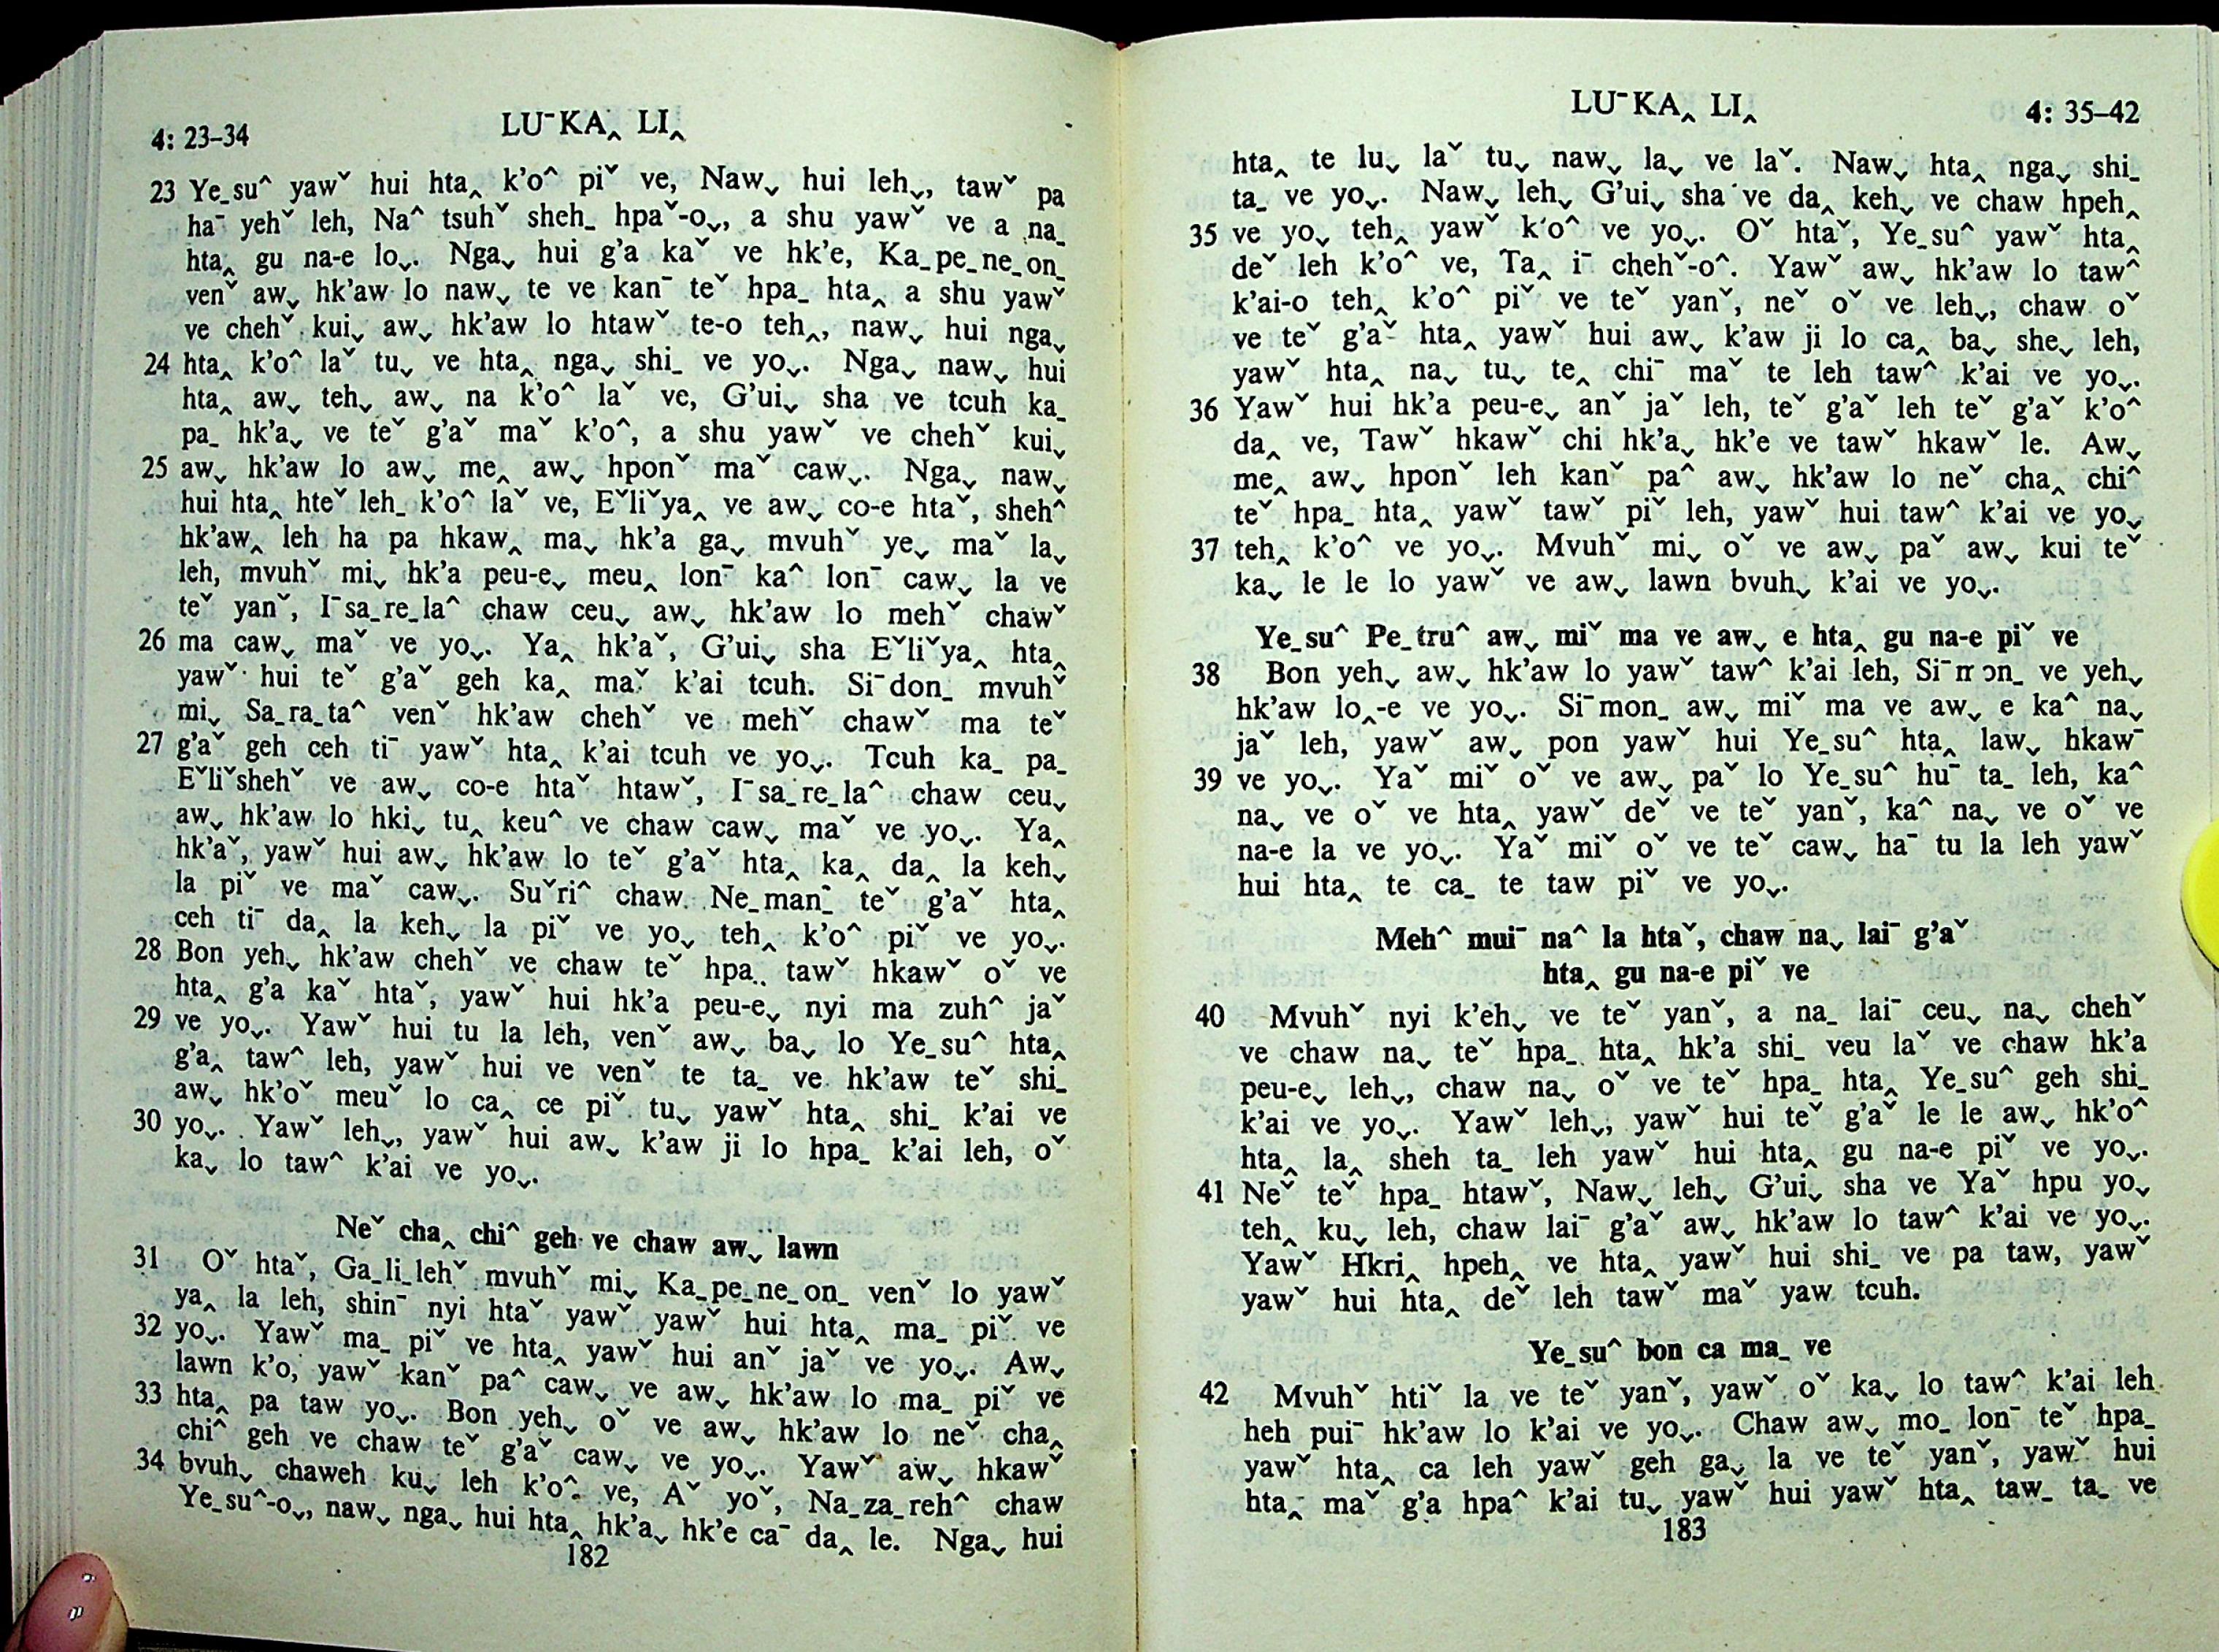 4: 23–34
LUˉKAꞈ LIꞈ
23 Ye_suˆ yawˇ hui htaꞈ k'oˆ piˇ ve, Nawˬ hui lehˬ, tawˇ pa
haˉ yehˇ leh, Naˆ tsuhˇ sheh_ hpaˇ-oˬ, a shu yawˇ ve a na_
htaꞈ gu na-e loˬ. Ngaˬ hui g'a kaˇ ve hk'e, Ka_pe_ne_on_
venˇ awˬ hk'aw lo nawˬ te ve kanˉ teˇ hpa_ htaꞈ a shu yawˇ
ve chehˇ kuiˬ awˬ hk'aw lo htawˇ te-o tehꞈ, nawˬ hui ngaˬ
24 htaꞈ k'oˆ laˇ tuˬ ve htaꞈ ngaˬ shi_ ve yoˬ. Ngaˬ nawˬ hui
htaꞈ awˬ tehˬ awˬ na k'oˆ laˇ ve, G'uiˬ sha ve tcuh ka_
pa_ hk'aˬ ve teˇ g'aˇ maˇ k'oˆ, a shu yawˇ ve chehˇ kuiˬ
25 awˬ hk'aw lo awˬ meꞈ awˬ hponˇ maˇ cawˬ. Ngaˬ nawˬ
hui htaꞈ hteˇ leh_ k'oˆ laˇ ve, Eˇliˇyaꞈ ve awˬ co-e htaˇ, shehˆ
hk'awꞈ leh ha pa hkawꞈ maˬ hk'a gaˬ mvuhˇ yeˬ maˇ laˬ
leh, mvuhˇ miˬ hk'a peu-eˬ meuꞈ lonˉ kaˆ lonˉ cawˬ la ve
teˇ yanˇ, Iˉsa_re_laˆ chaw ceuˬ awˬ hk'aw lo mehˇ chawˇ
26 ma cawˬ maˇ ve yoˬ. Yaꞈ hk'aˇ, G'uiˬ sha Eˇliˇyaꞈ htaꞈ
yawˇ hui teˇ g'aˇ geh kaꞈ maˇ k'ai tcuh. Siˉdon_ mvuhˇ
miˬ Sa_ra_taˆ venˇ hk'aw chehˇ ve mehˇ chawˇ ma teˇ
27 g'aˇ geh ceh tiˉ yawˇ htaꞈ k'ai tcuh ve yoˬ. Tcuh ka_ pa_
Eˇliˇshehˇ ve awˬ co-e htaˇ htawˇ, Iˉsa_re_laˆ chaw ceuˬ
awˬ hk'aw lo hkiˬ tuꞈ keuˆ ve chaw cawˬ maˇ ve yoˬ. Yaꞈ
hk'aˇ, yawˇ hui awˬ hk'aw lo teˇ g'aˇ htaꞈ kaꞈ daꞈ la kehˬ
la piˇ ve maˇ cawˬ. Suˇriˆ chaw Ne_manˉ teˇ g'aˇ htaꞈ
ceh tiˉ daꞈ la kehˬ la piˇ ve yoˬ tehꞈ k'oˆ piˇ ve yoˬ.
28 Bon yehˬ hk'aw chehˇ ve chaw teˇ hpa_ tawˇ hkawˇ oˇ ve
htaꞈ g'a kaˇ htaˇ, yawˇ hui hk'a peu-eˬ nyi ma zuhˆ jaˇ
29 ve yoˬ. Yawˇ hui tu la leh, venˇ awˬ baˬ lo Ye_suˆ htaꞈ
g'aꞈ tawˆ leh, yawˇ hui ve venˇ te ta_ ve hk'aw teˇ shi_
awˬ hk'oˇ meuˇ lo caꞈ ce piˇ tuˬ yawˇ htaꞈ shi_ k'ai ve
30 yoˬ. Yawˇ lehˬ, yawˇ hui awˬ k'aw ji lo hpa_ k'ai leh, oˇ
kaˬ lo tawˆ k'ai ve yoˬ.
Neˇ chaꞈ chiˆ geh ve chaw awˬ lawn
31 Oˇ htaˇ, Ga_li_lehˇ mvuhˇ miˬ Ka_pe_ne_on_ venˇ lo yawˇ
yaꞈ la leh, shinˉ nyi htaˇ yawˇ yawˇ hui htaꞈ ma_ piˇ ve
32 yoˬ. Yawˇ ma_ piˇ ve htaꞈ yawˇ hui anˇ jaˇ ve yoˬ. Awˬ
lawn k'o, yawˇ kanˇ paˆ cawˬ ve awˬ hk'aw lo ma_ piˇ ve
33 htaꞈ pa taw yoˬ. Bon yehˬ oˇ ve awˬ hk'aw lo neˇ chaꞈ
chiˆ geh ve chaw teˇ g'aˇ cawˬ ve yoˬ. Yawˇ awˬ hkawˇ
34 bvuhˬ chaweh kuˬ leh k'oˆ ve, Aˇ yoˇ, Na_za_rehˆ chaw
Ye_suˆ-oˬ, nawˬ ngaˬ hui htaꞈ hk'aˬ hk'e caˉ daꞈ le. Ngaˬ hui
182
LUˉKAꞈ LIꞈ
4: 35–42
htaꞈ te luˬ laˇ tuˬ nawˬ laˬ ve laˇ. Nawˬ htaꞈ ngaˬ shi_
ta_ ve yoˬ. Nawˬ lehˬ G'uiˬ sha ve daꞈ kehˬ ve chaw hpehꞈ
35 ve yoˬ tehꞈ yawˇ k'oˆ ve yoˬ. Oˇ htaˇ, Ye_suˆ yawˇ htaꞈ
deˇ leh k'oˆ ve, Taꞈ iˉ chehˇ-oˆ. Yawˇ awˬ hk'aw lo tawˆ
k'ai-o tehꞈ k'oˆ piˇ ve teˇ yanˇ, neˇ oˇ ve lehˬ, chaw oˇ
ve teˇ g'aˇ htaꞈ yawˇ hui awˬ k'aw ji lo caꞈ baˬ sheˬ leh,
yawˇ htaꞈ naˬ tuˬ teꞈ chiˉ maˇ te leh tawˆ k'ai ve yoˬ.
36 Yawˇ hui hk'a peu-eˬ anˇ jaˇ leh, teˇ g'aˇ leh teˇ g'aˇ k'oˆ
daꞈ ve, Tawˇ hkawˇ chi hk'aˬ hk'e ve tawˇ hkawˇ le. Awˬ
meꞈ awˬ hponˇ leh kanˇ paˆ awˬ hk'aw lo neˇ chaꞈ chiˆ
teˇ hpa_ htaꞈ yawˇ tawˇ piˇ leh, yawˇ hui tawˆ k'ai ve yoˬ
37 tehꞈ k'oˆ ve yoˬ. Mvuhˇ miˬ oˇ ve awˬ paˇ awˬ kui teˇ
kaˬ le le lo yawˇ ve awˬ lawn bvuhˬ k'ai ve yoˬ.
Ye_suˆ Pe_truˆ awˬ miˇ ma ve awˬ e htaꞈ gu na-e piˇ ve
38 Bon yehˬ awˬ hk'aw lo yawˇ tawˆ k'ai leh, Siˉmon_ ve yehˬ
hk'aw loꞈ-e ve yoˬ. Siˉmon_ awˬ miˇ ma ve awˬ e kaˆ naˬ
jaˇ leh, yawˇ awˬ pon yawˇ hui Ye_suˆ htaꞈ lawˬ hkawˉ
39 ve yoˬ. Yaˇ miˇ oˇ ve awˬ paˇ lo Ye_suˆ huˉ ta_ leh, kaˆ
naˬ ve oˇ ve htaꞈ yawˇ deˇ ve teˇ yanˇ, kaˆ naˬ ve oˇ ve
na-e la ve yoˬ. Yaˇ miˇ oˇ ve teˇ cawˬ haˉ tu la leh yawˇ
hui htaꞈ te ca_ te taw piˇ ve yoˬ.
Mehˆ muiˉ naˆ la htaˇ, chaw naˬ laiˉ g'aˇ
htaꞈ gu na-e piˇ ve
40 Mvuhˇ nyi k'ehˬ ve teˇ yanˇ, a na_ laiˉ ceuˬ naˬ chehˇ
ve chaw naˬ teˇ hpa_ htaꞈ hk'a shi_ veu laˇ ve chaw hk'a
peu-eˬ lehˬ, chaw naˬ oˇ ve teˇ hpa_ htaꞈ Ye_suˆ geh shi_
k'ai ve yoˬ. Yawˇ lehˬ, yawˇ hui teˇ g'aˇ le le awˬ hk'oˆ
htaꞈ laꞈ sheh ta_ leh yawˇ hui htaꞈ gu na-e piˇ ve yoˬ.
41 Neˇ teˇ hpa_ htawˇ, Nawˬ lehˬ G'uiˬ sha ve Yaˇ hpu yoˬ
tehꞈ kuˬ leh, chaw laiˉ g'aˇ awˬ hk'aw lo tawˆ k'ai ve yoˬ.
Yawˇ Hkriꞈ hpehꞈ ve htaꞈ yawˇ hui shi_ ve pa taw, yawˇ
yawˇ hui htaꞈ deˇ leh tawˇ maˇ yaw tcuh.
Ye_suˆ bon ca ma_ ve
42 Mvuhˇ htiˇ la ve teˇ yanˇ, yawˇ oˇ kaˬ lo tawˆ k'ai leh
heh puiˉ hk'aw lo k'ai ve yoˬ. Chaw awˬ mo_ lonˉ teˇ hpa_
yawˇ htaꞈ ca leh yawˇ geh gaˬ la ve teˇ yanˇ, yawˇ hui
htaꞈ maˇ g'a hpaˆ k'ai tuˬ yawˇ hui yawˇ htaꞈ taw_ ta_ ve
183